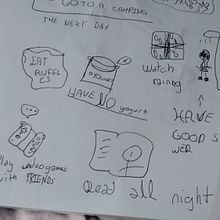 GO TO A CAMPING
THE NEXT DAY
EAT
RUFFL
ES
WATCH
raining
HAVE NO yogurt
HAVE
GOOD S
Play videogames
with FRIENDS
Read all night